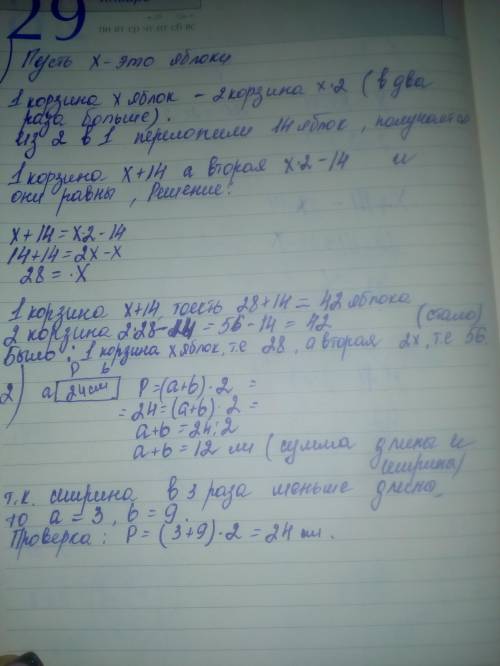 29
январь
пн вт ср чт пт сб вс
) Пусть x - это яблоки
1 корзина x яблок - 2 корзина x·2 (в два
раза больше).
из 2 в 1 переложили 14 яблок, получается
1 корзина x+14 а вторая x·2-14 и
они равны, Решение:
x+14=x2-14
14+14=2x-x
28=x
1 корзина x+14, тоесть 28+14=42 яблока
2 корзина 2·28-14=56-14=42 (стало)
Было: 1 корзина x яблок, т.е 28, а вторая 2x, т.е 56.
P b
2) a 24см P=(a+b)·2 =
=24=(a+b)·2=
a+b=24:2
a+b=12 см (сумма длина и
ширина)
т.к. ширина в 3 раза меньше длина,
то a=3, b=9.
Проверка: P=(3+9)·2=24 см.